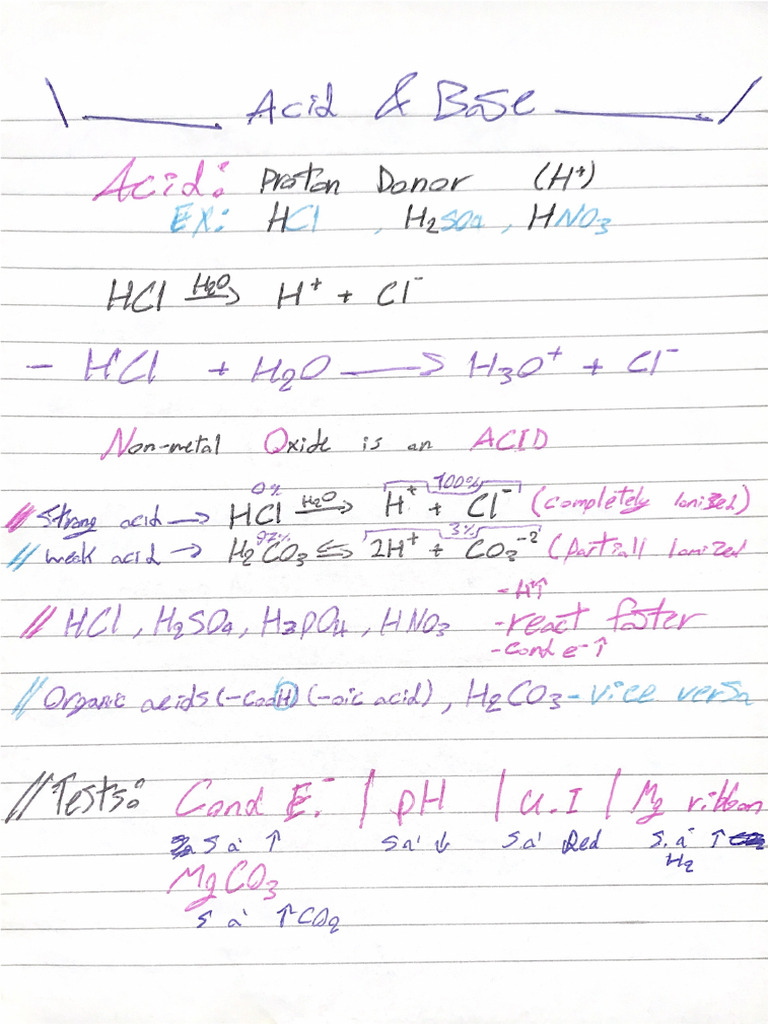 Acid & Base
Acid: Proton Donor (H⁺)
EX: HCl , H₂SO₄ , HNO₃
HCl H₂O→ H⁺ + Cl⁻
- HCl + H₂O → H₃O⁺ + Cl⁻
Non-metal Oxide is an ACID
0% 100%
// Strong acid → HCl H₂O→ H⁺ + Cl⁻ (completely Ionized)
97% 3%
// weak acid → H₂CO₃ ⇌ 2H⁺ + CO₃⁻² (Partiall Ionized
- H⁺↑
// HCl, H₂SO₄, H₃PO₄, HNO₃ - react faster
- cond e⁻ ↑
// Organic acids (-COOH) (-oic acid), H₂CO₃ - vice versa
// Tests: Cond E. | pH | U.I | Mg ribbon
S a ↑ S a ↓ S.a Red S. a ↑
H₂
MgCO₃
S a ↑ CO₂